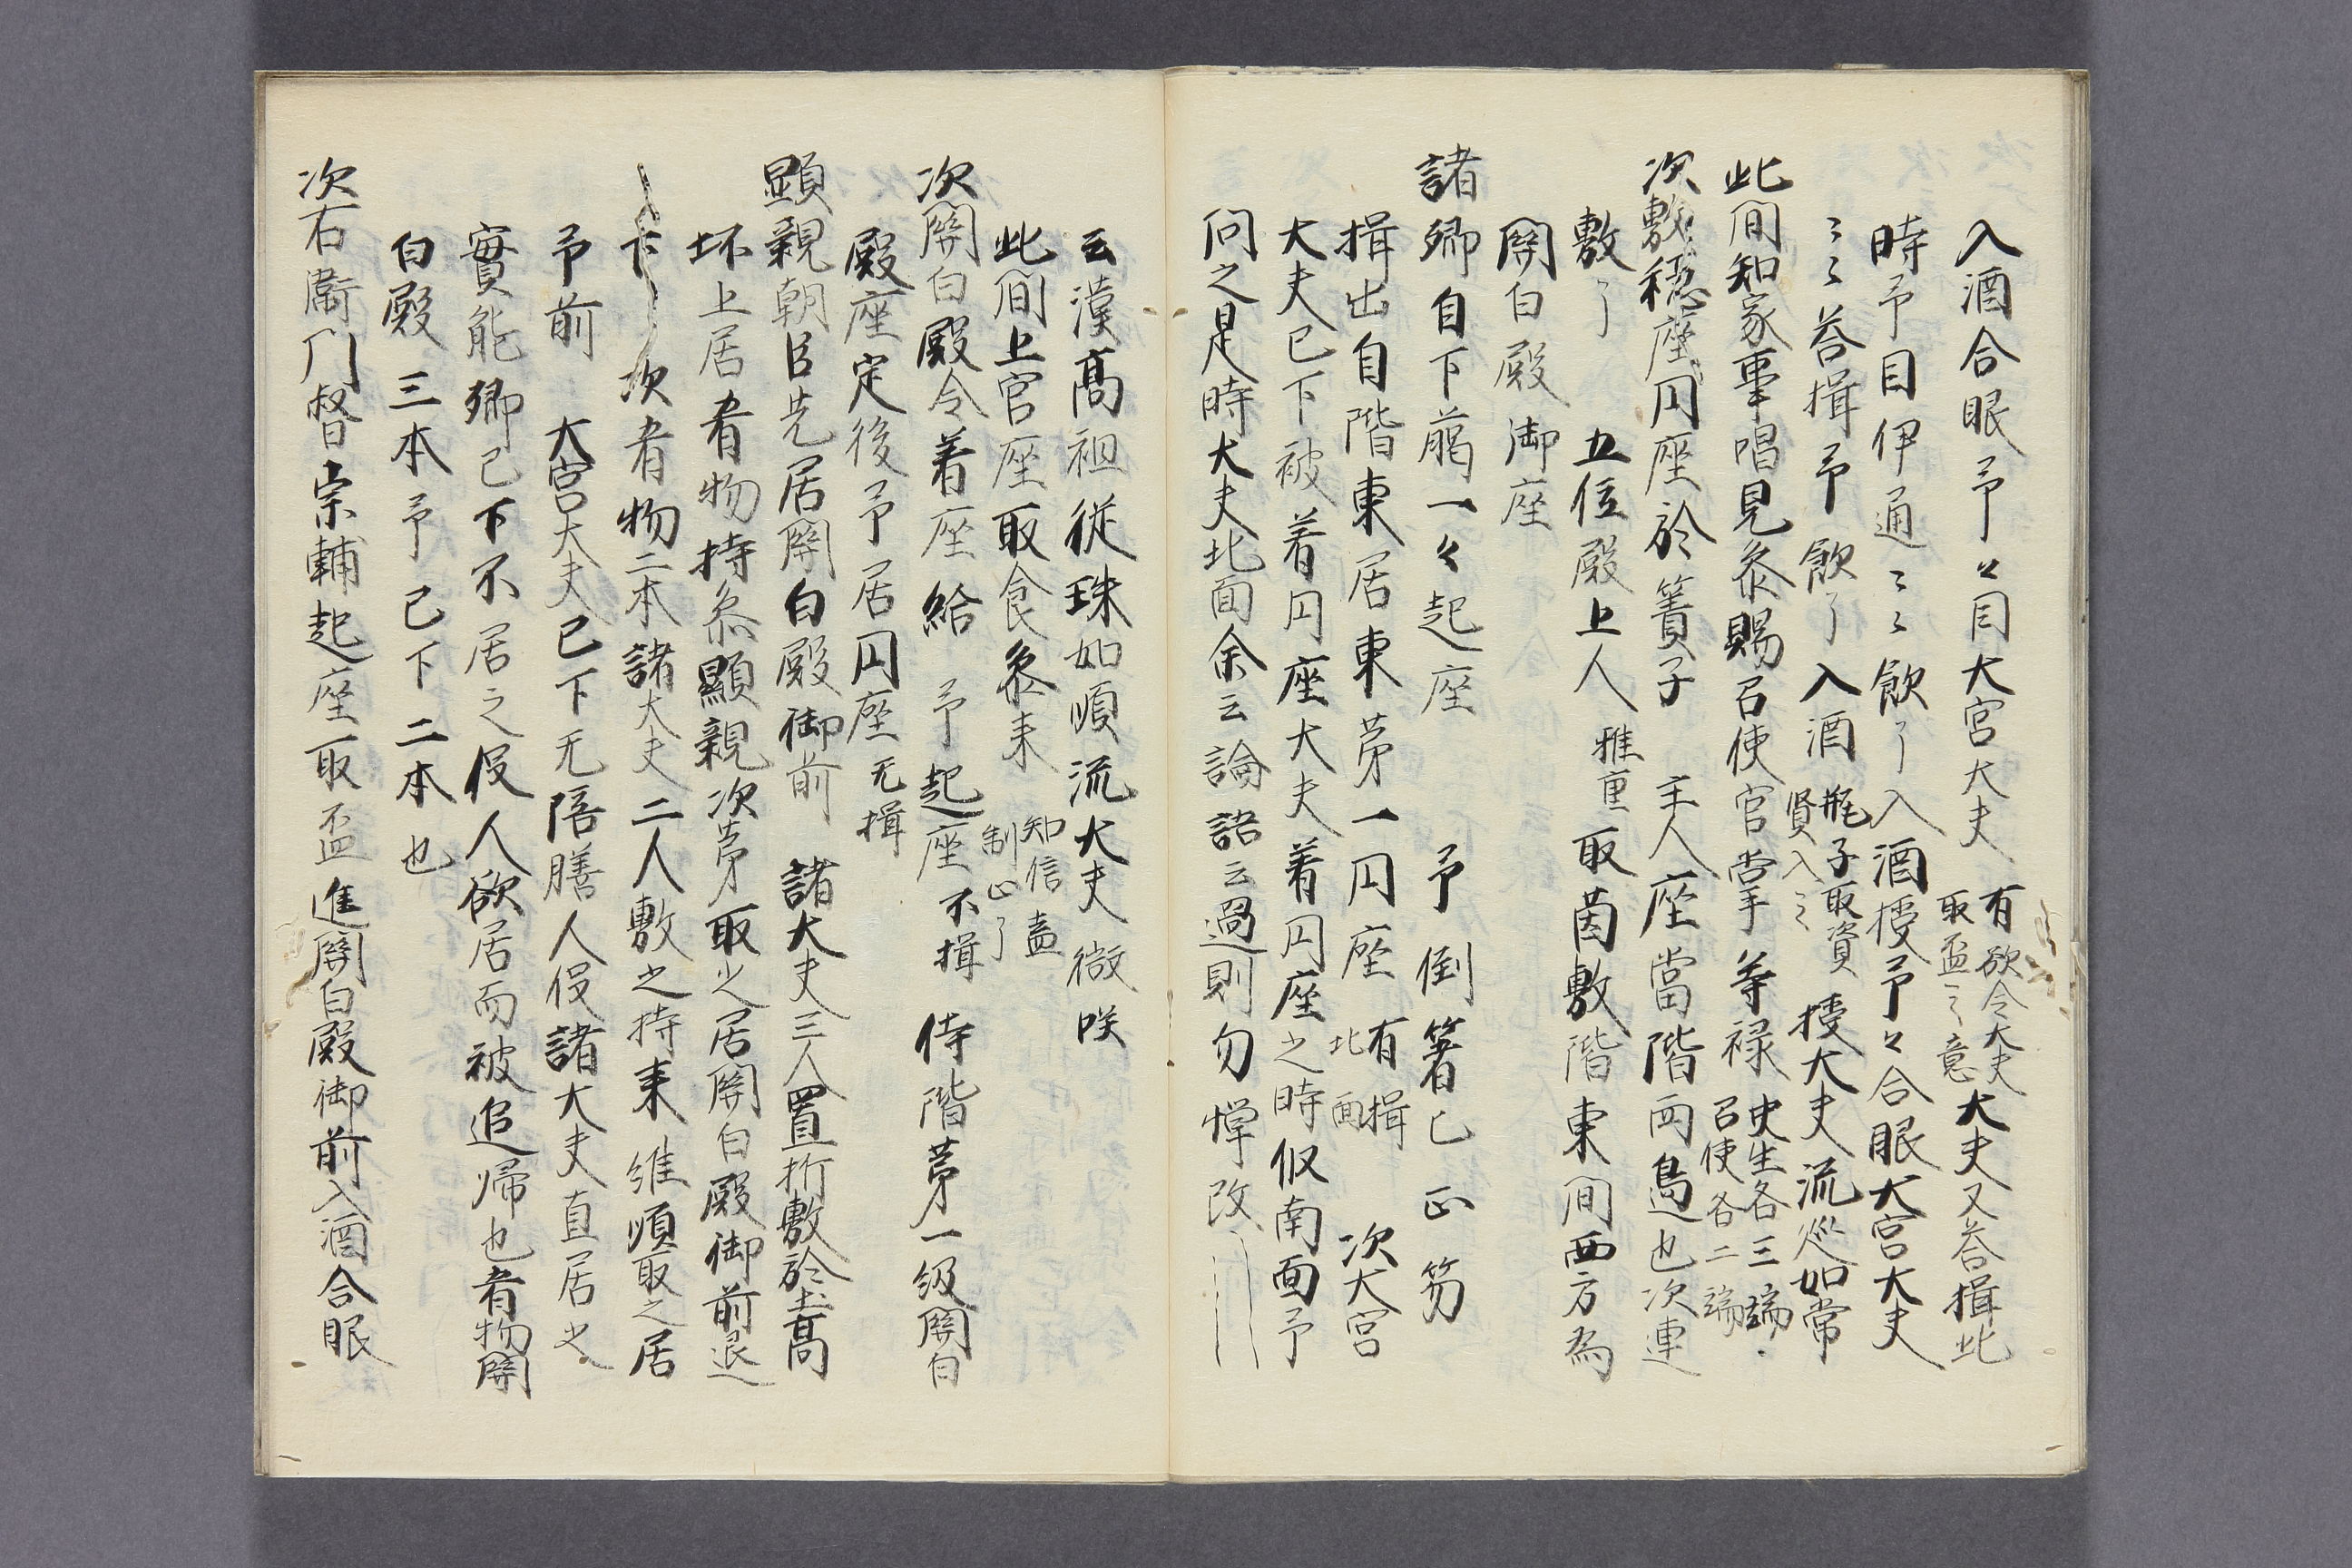 入酒合眼予々目大宮大夫有欲令大夫取盃之意大夫又荅揖此
時予目伊通々々飲了入酒授予々合眼大宮大夫
々々荅揖予飲了入酒瓶子取資賢入之授大夫流巡如常
此間知家事唱見参賜召使官掌等禄史生各三端召使各二端
次敷穏座円座於簀子主人座當階西島也次連
敷了五位殿上人雅重取茵敷階東間西方為
関白殿御座
諸卿自下﨟一々起座予倒箸匕正笏
揖出自階東居東第一円座有揖北面次大宮
大夫已下被着円座大夫着円座之時仮南面予
問之是時大夫北面余云論語云過則勿憚改
云漢高祖従珠如順流大夫微咲
此間上官座取食参来知信盖制止了
次関白殿令着座給予起座不揖侍階第一級関白
殿座定後予居円座无揖
顕親朝臣先居関白殿御前諸大夫三人置折敷於土高
坏上居肴物持参顕親次第取之居関白殿御前退
下次肴物二本諸大夫二人敷之持来維順取之居
予前大宮大夫已下无陪膳人役諸大夫直居之
實能卿已下不居之役人欲居而被追帰也肴物関
白殿三本予已下二本也
次右衛門督宗輔起座取盃進関白殿御前入酒合眼